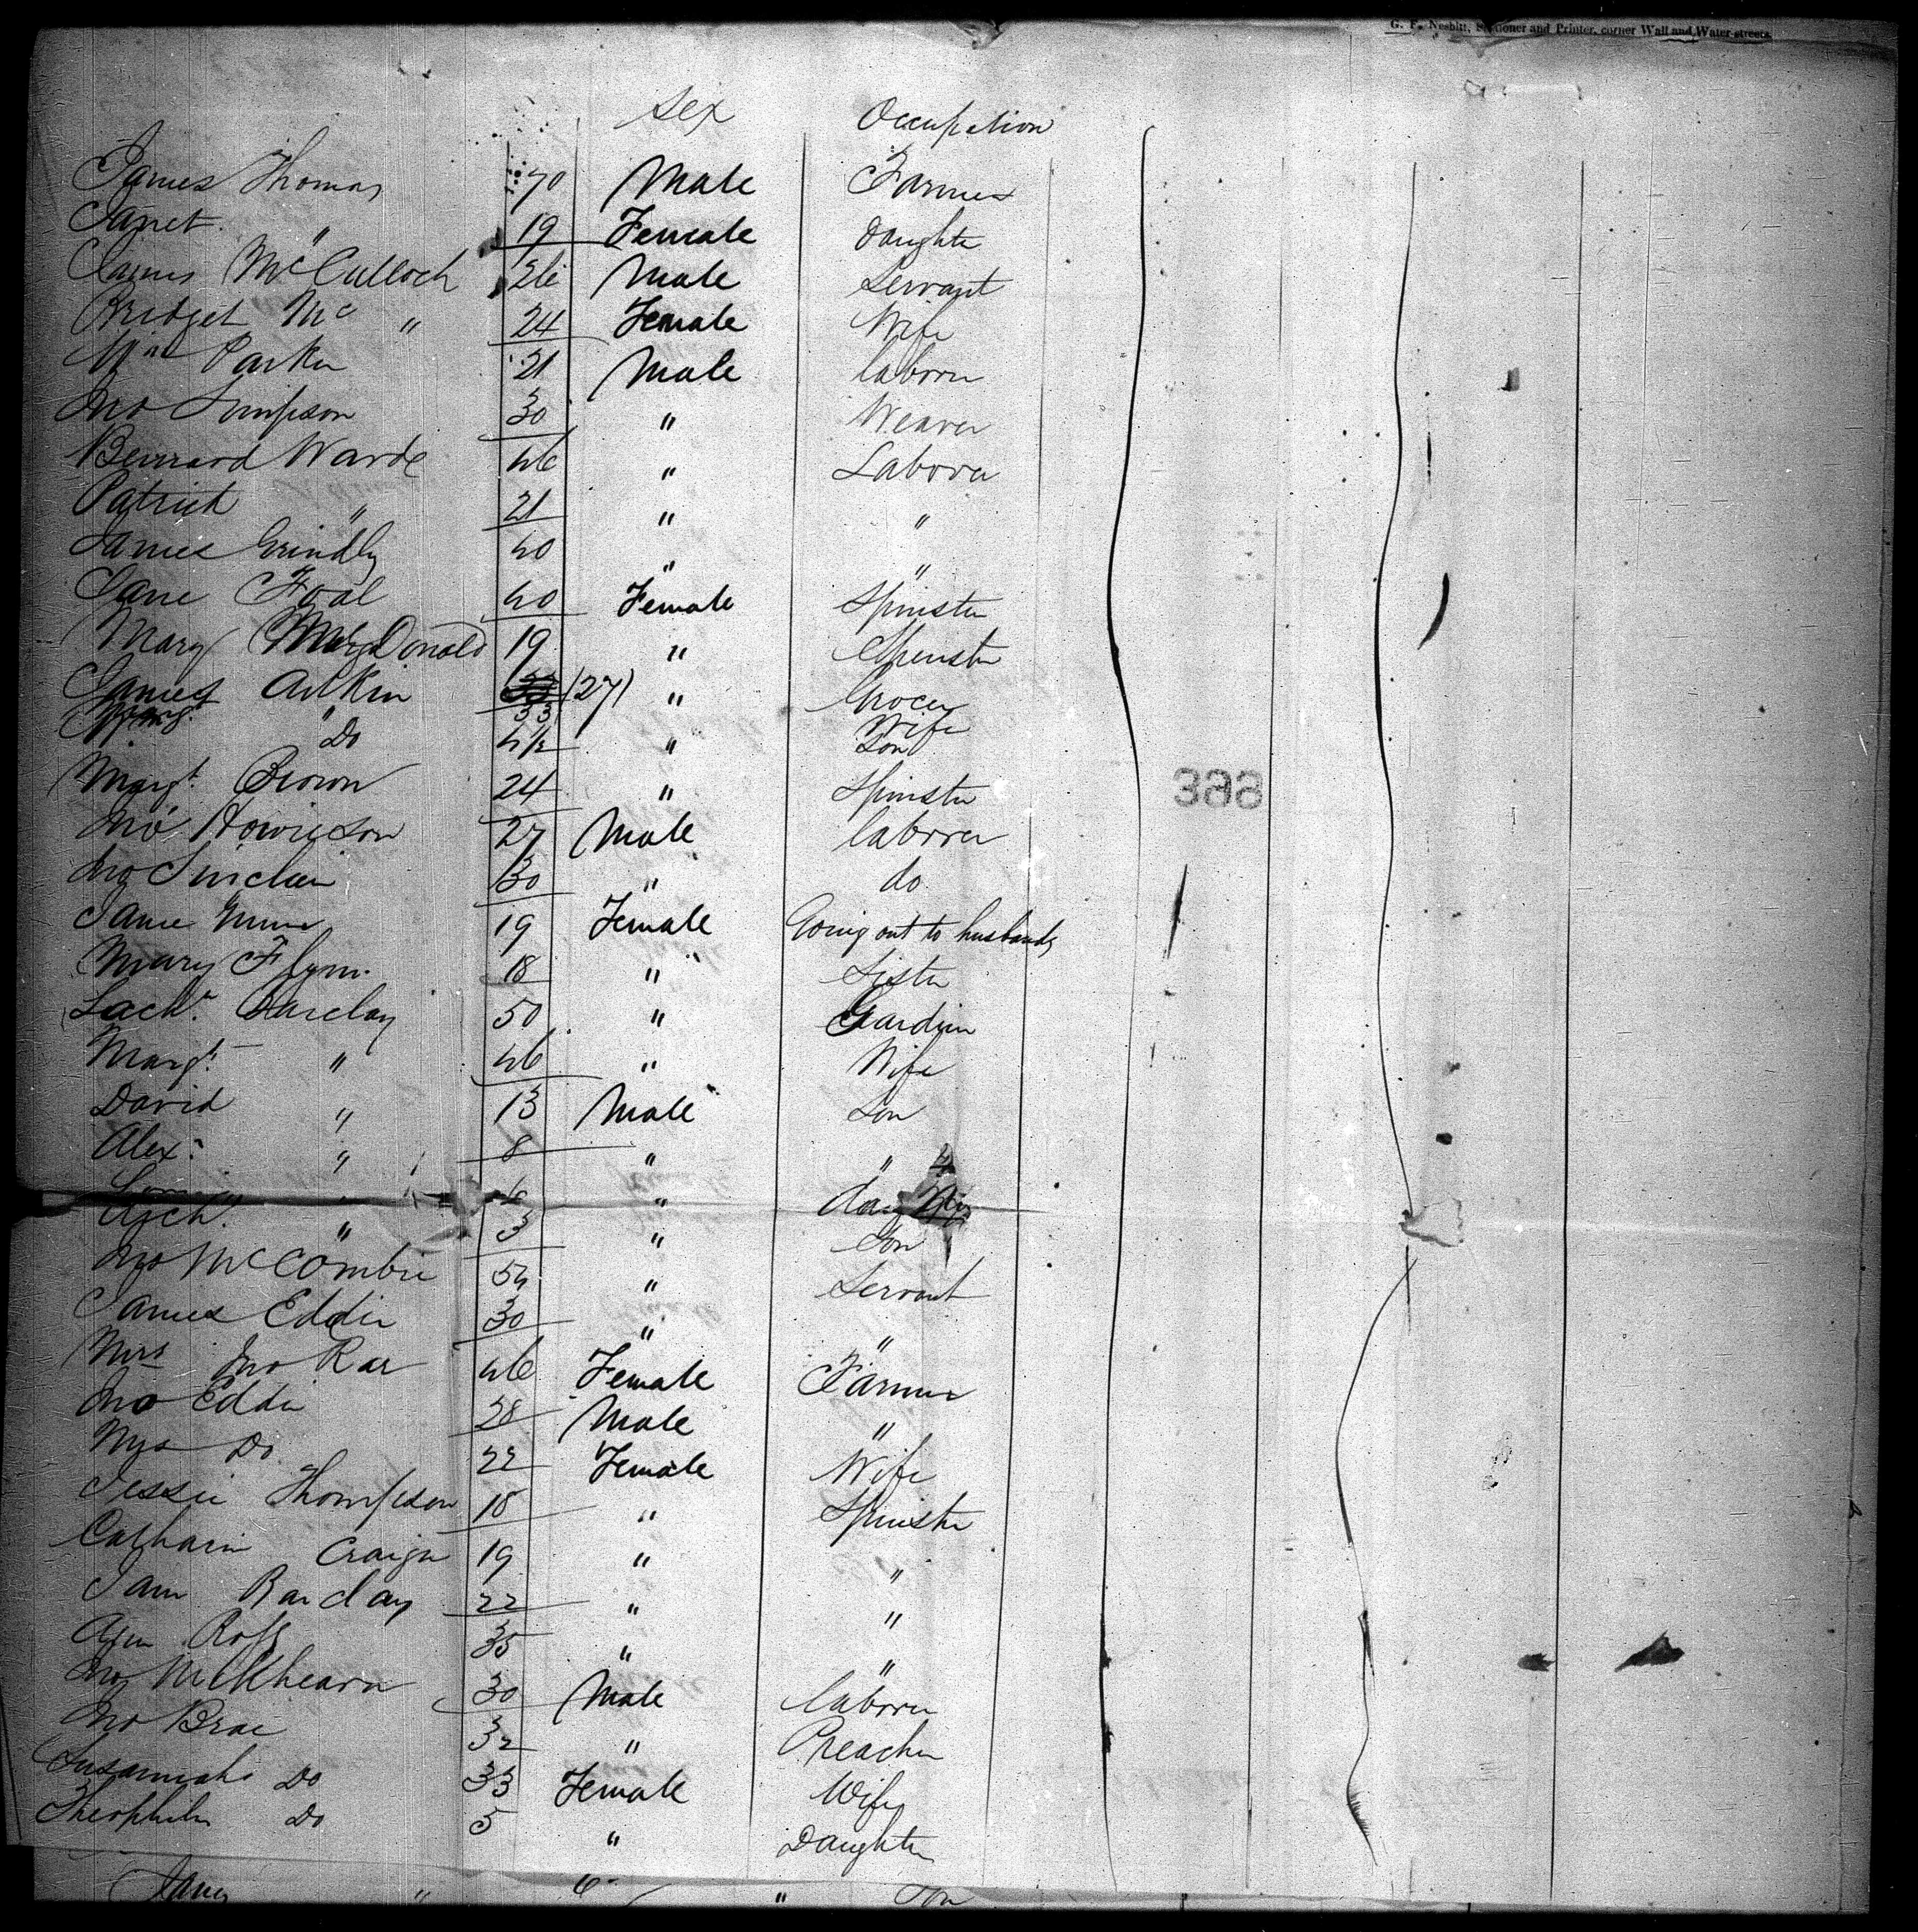 G. F. Nesbitt, Stationer and Printer, corner Wall and Water-streets.
Sex Occupation
James Thomas 70 Male Farmer
Janet " 19 Female Daughter
James McCulloch 26 Male Servant
Bridget Mc " 24 Female Wife
Wm Parker 21 Male laborer
Jno Simpson 30 " Weaver
Bernard Warde 46 " Laborer
Patrick " 21 " "
James Grindly 40 " "
Jane 40 Female Spinster
Mary McDonald 19 " Spinster
James Aitkin (27) " Grocer
" 33 Wife
Do 4/12 " Son
Margt. Brown 24 " Spinster
Jno Howieson 27 Male laborer
Jno Sinclair 30 " do
Jane 19 Female Going out to husband
Mary Flynn 18 " Sister
Lachn. Barclay 50 " Gardiner
Margt. " 46 " Wife
David " 13 Male Son
Alexr. " 8 " "
" "
Arch. " 3 " Son
Jno McCombie 54 " Servant
James Eddie 30 " "
Mrs Jno Rae 46 Female Farmer
Jno Eddie 28 Male "
Mrs Do 22 Female Wife
Jessie Thompson 18 " Spinster
Catharin 19 " "
Barclay 22 " "
Ross 35 " "
Jno 30 Male laborer
Jno Brae 32 " Preacher
Susannah Do 33 Female Wife
Do 5 " Daughter
James " 6 " Son
388